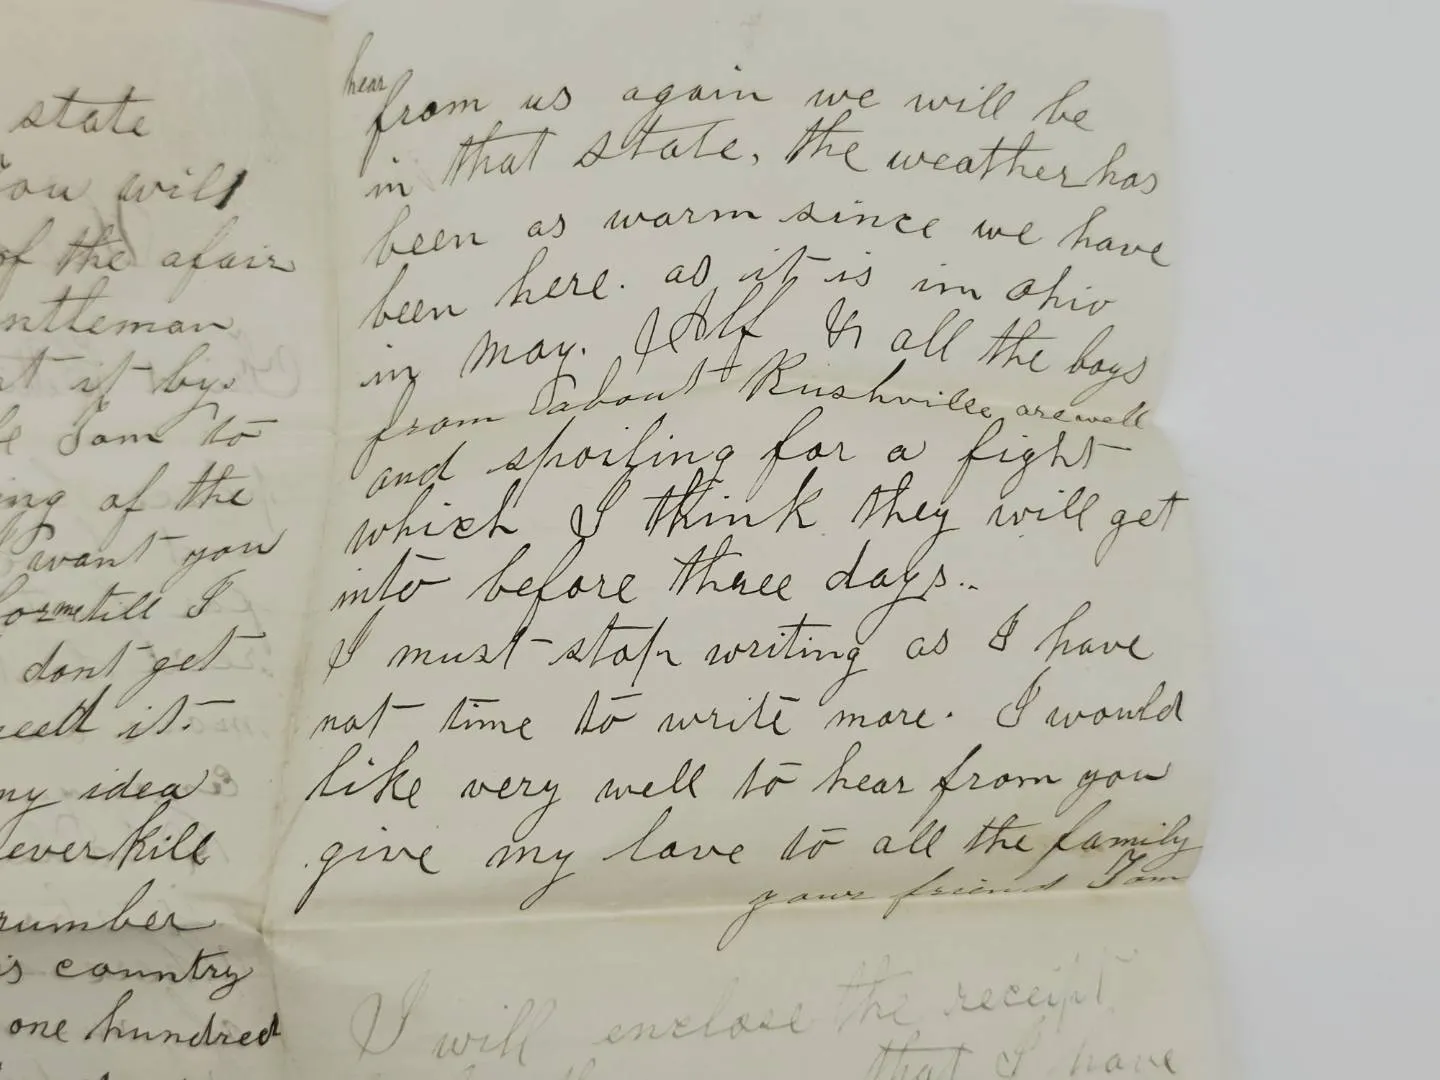 state
you will
of the afair
ntleman
it by
I am to
ing of the
want you
till I
dont get
need it.
my idea
ever kill
number
is country
one hundred
hear
from us again we will be
in that state, the weather has
been as warm since we have
been here. as it is in ohio
in May. Alf & all the boys
from about Rushville are well
and spoiling for a fight
which I think they will get
into before three days..
I must stop writing as I have
not time to write more. I would
like very well to hear from you
give my love to all the family
your friend Tom
I will enclose the receipt
that I have